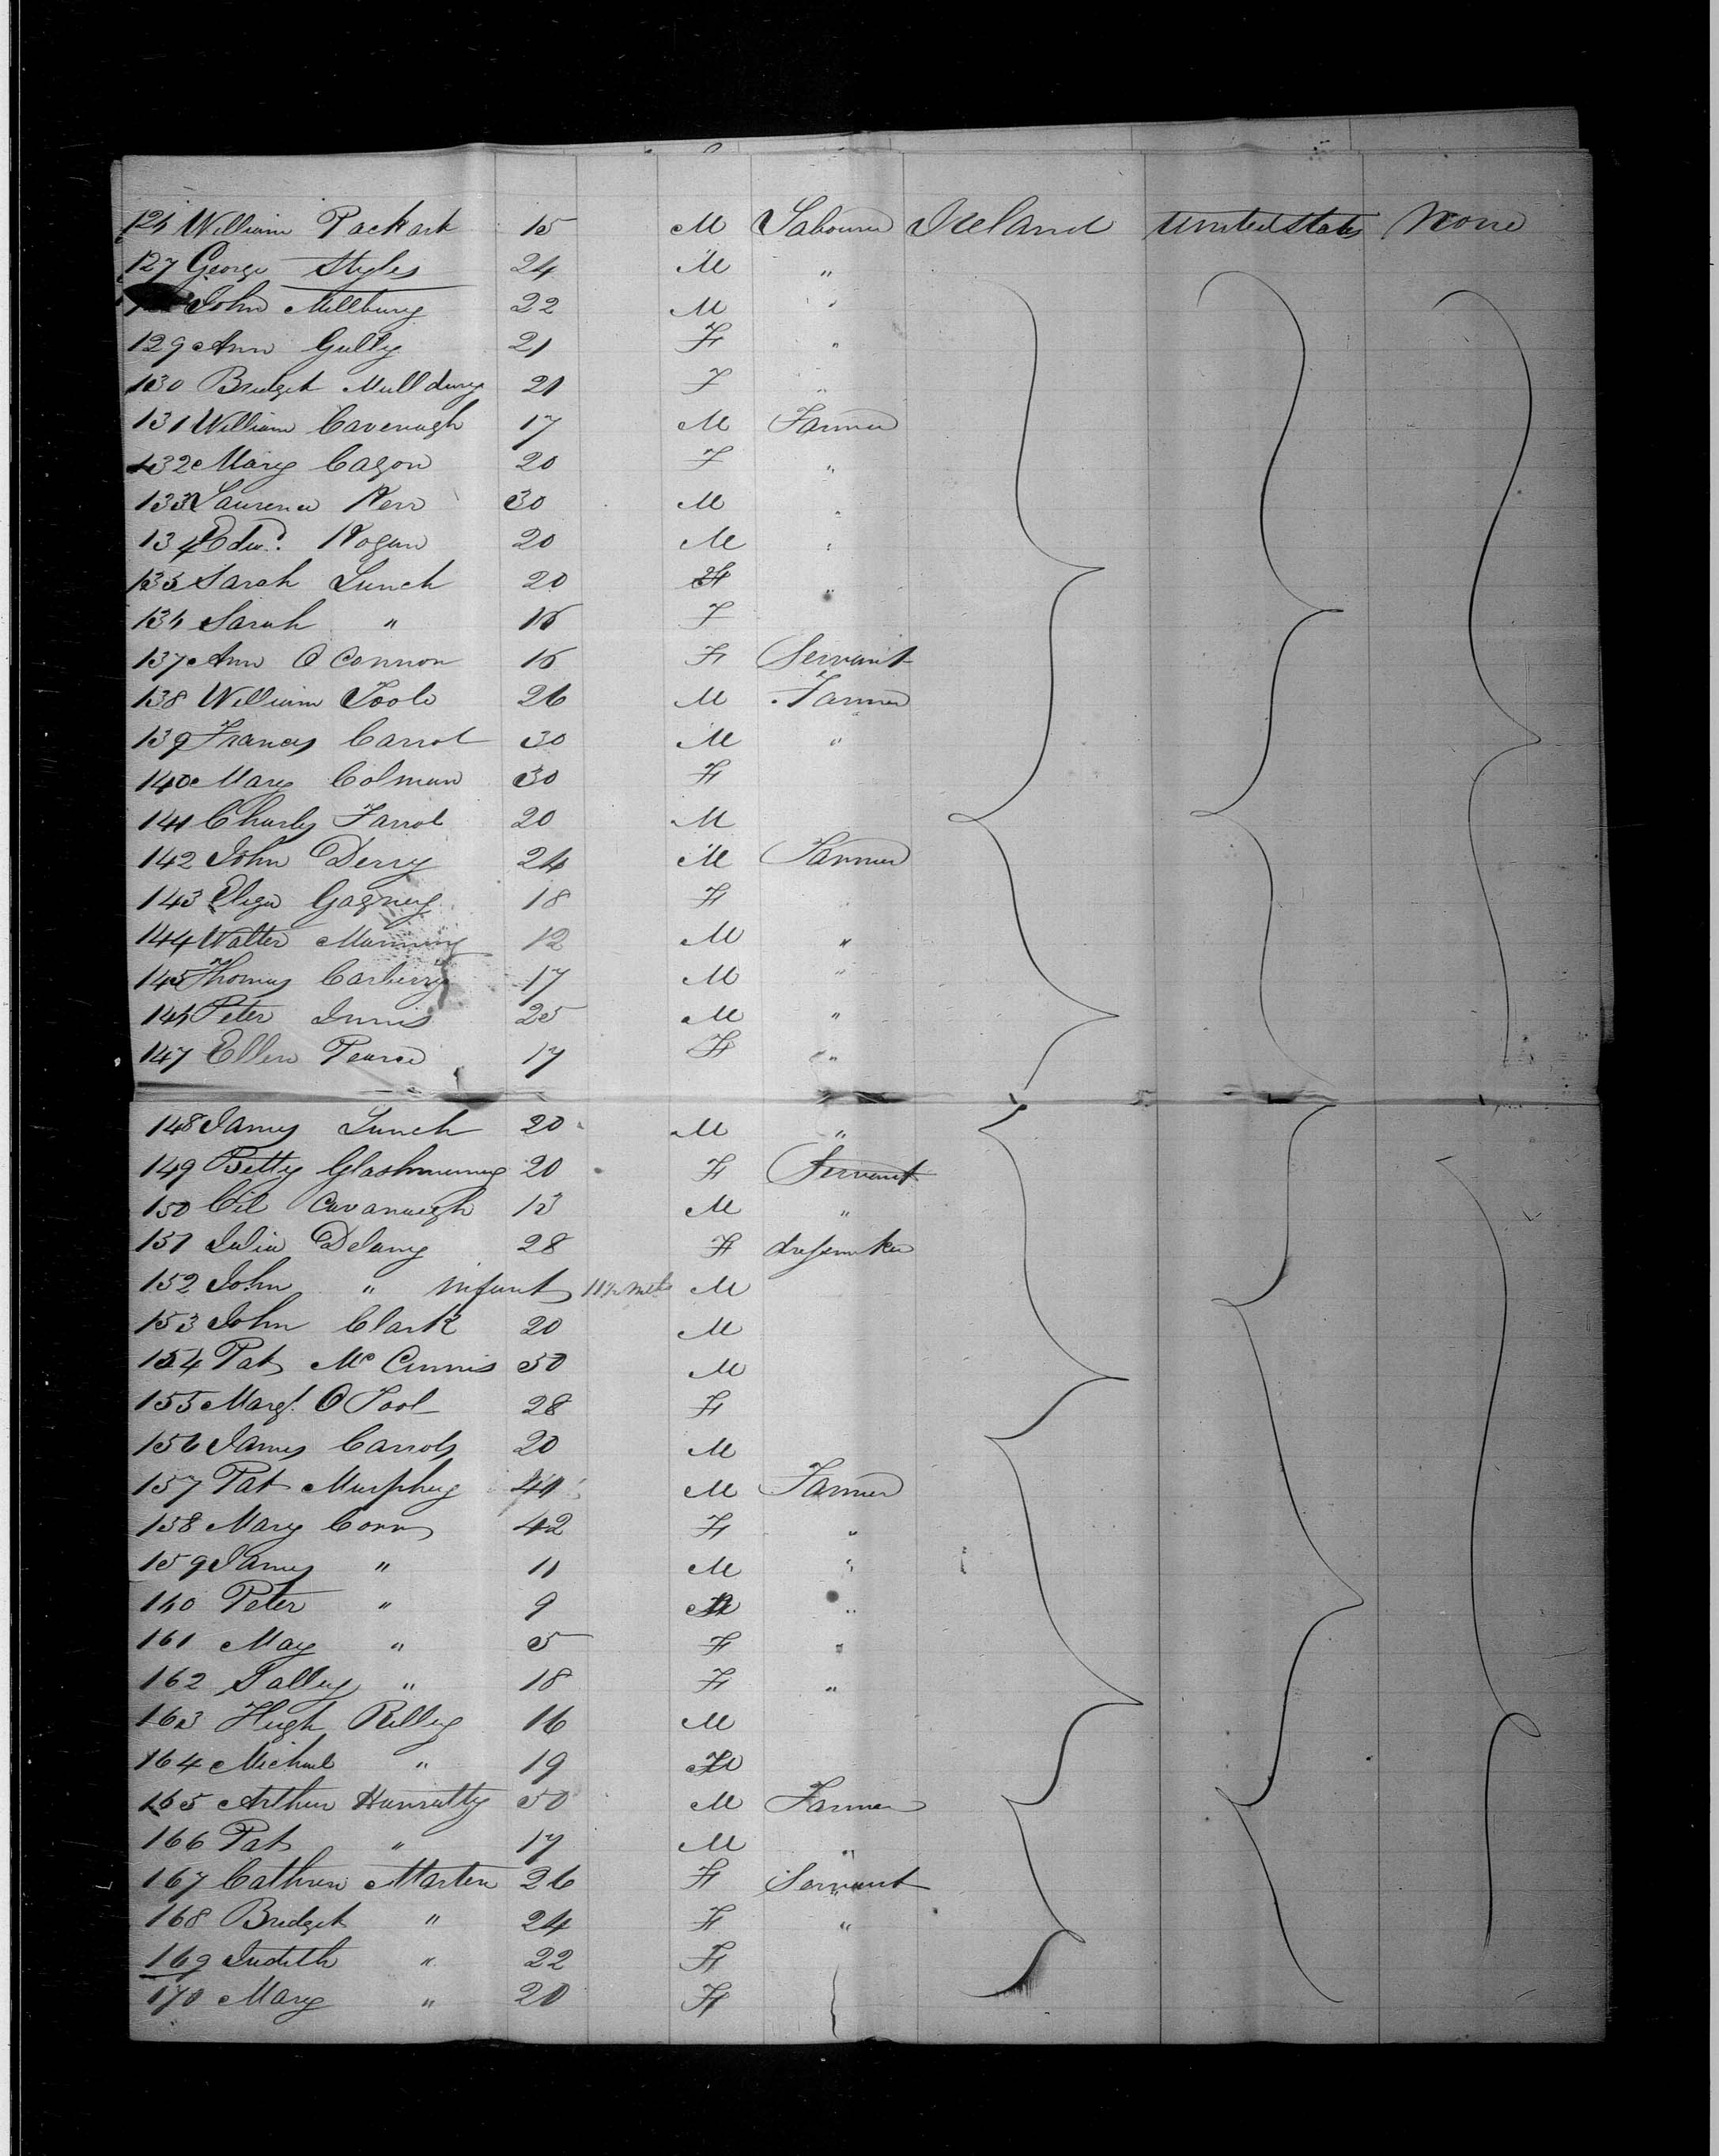 126 William Packart 15 M Labourer Ireland United States None
127 George Styles 24 M "
John Millbury 22 M "
129 Ann Gully 21 F "
130 Bridget Mulldury 21 F "
131 William Cavenagh 17 M Farmer
132 Mary Cagon 20 F "
133 Laurence Kerr 30 M "
134 Edwd. Hogan 20 M "
135 Sarah Lynch 20 F "
136 Sarah " 16 F
137 Ann O Connor 16 F Servant
138 William Toole 26 M Farmer
139 Francis Carrol 30 M "
140 Mary Colman 30 F
141 Charls Farrol 20 M
142 John Derry 24 M Farmer
143 Eliza Gagney 18 F
144 Walter Manning 12 M "
145 Thomas Carberry 17 M "
146 Peter Innis 25 M "
147 Ellen Pearce 17 F "
148 James Lynch 20 M "
149 Betty Glashmuney 20 F Servant
150 Cavanaugh 13 M "
151 Julia Delany 28 F dressmaker
152 John " infant 11½ mths M
153 John Clark 20 M
154 Pat Mc Cinnis 30 M
155 Margt. O Tool 28 F
156 James Carrols 20 M
157 Pat Murphy 40 M Farmer
158 Mary Corr 42 F "
159 James " 11 M "
160 Peter " 9 M "
161 May " 5 F "
162 Salley " 18 F "
163 Hugh Rilley 16 M
164 Michael " 19 M
165 Arthur Hanratty 50 M Farmer
166 Pat " 17 M "
167 Cathren Marten 26 F Servant
168 Bridget " 24 F "
169 Judith " 22 F
170 Mary " 20 F